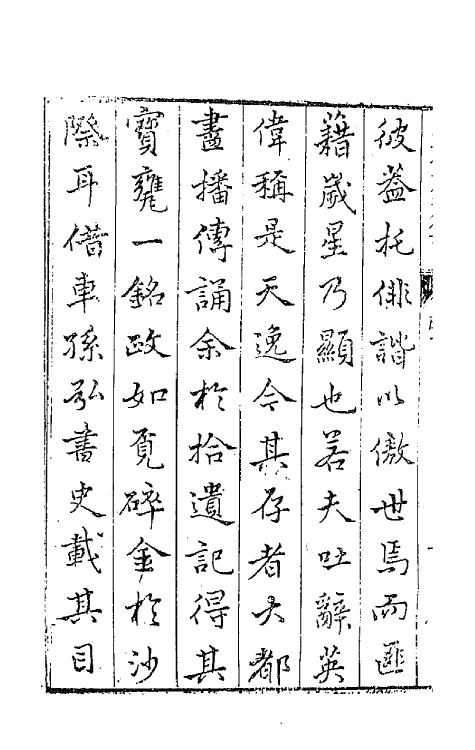 彼蓋托俳諧以傲世焉而匪
籍歲星乃顯也若夫吐辭英
偉稱是天逸今其存者大都
盡播傳誦余於拾遺記得其
寶甕一銘政如覓碎金於沙
際耳借車孫弘書史載其目